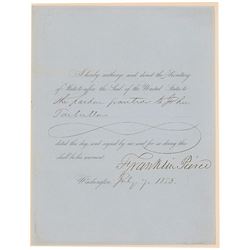 I hereby authorize and direct the Secretary
of State to affix the Seal of the United States to
the pardon granted to John
Tarbullo
dated this day and signed by me and for so doing this
shall be his warrant.
Franklin Pierce
Washington, July 7, 1853.